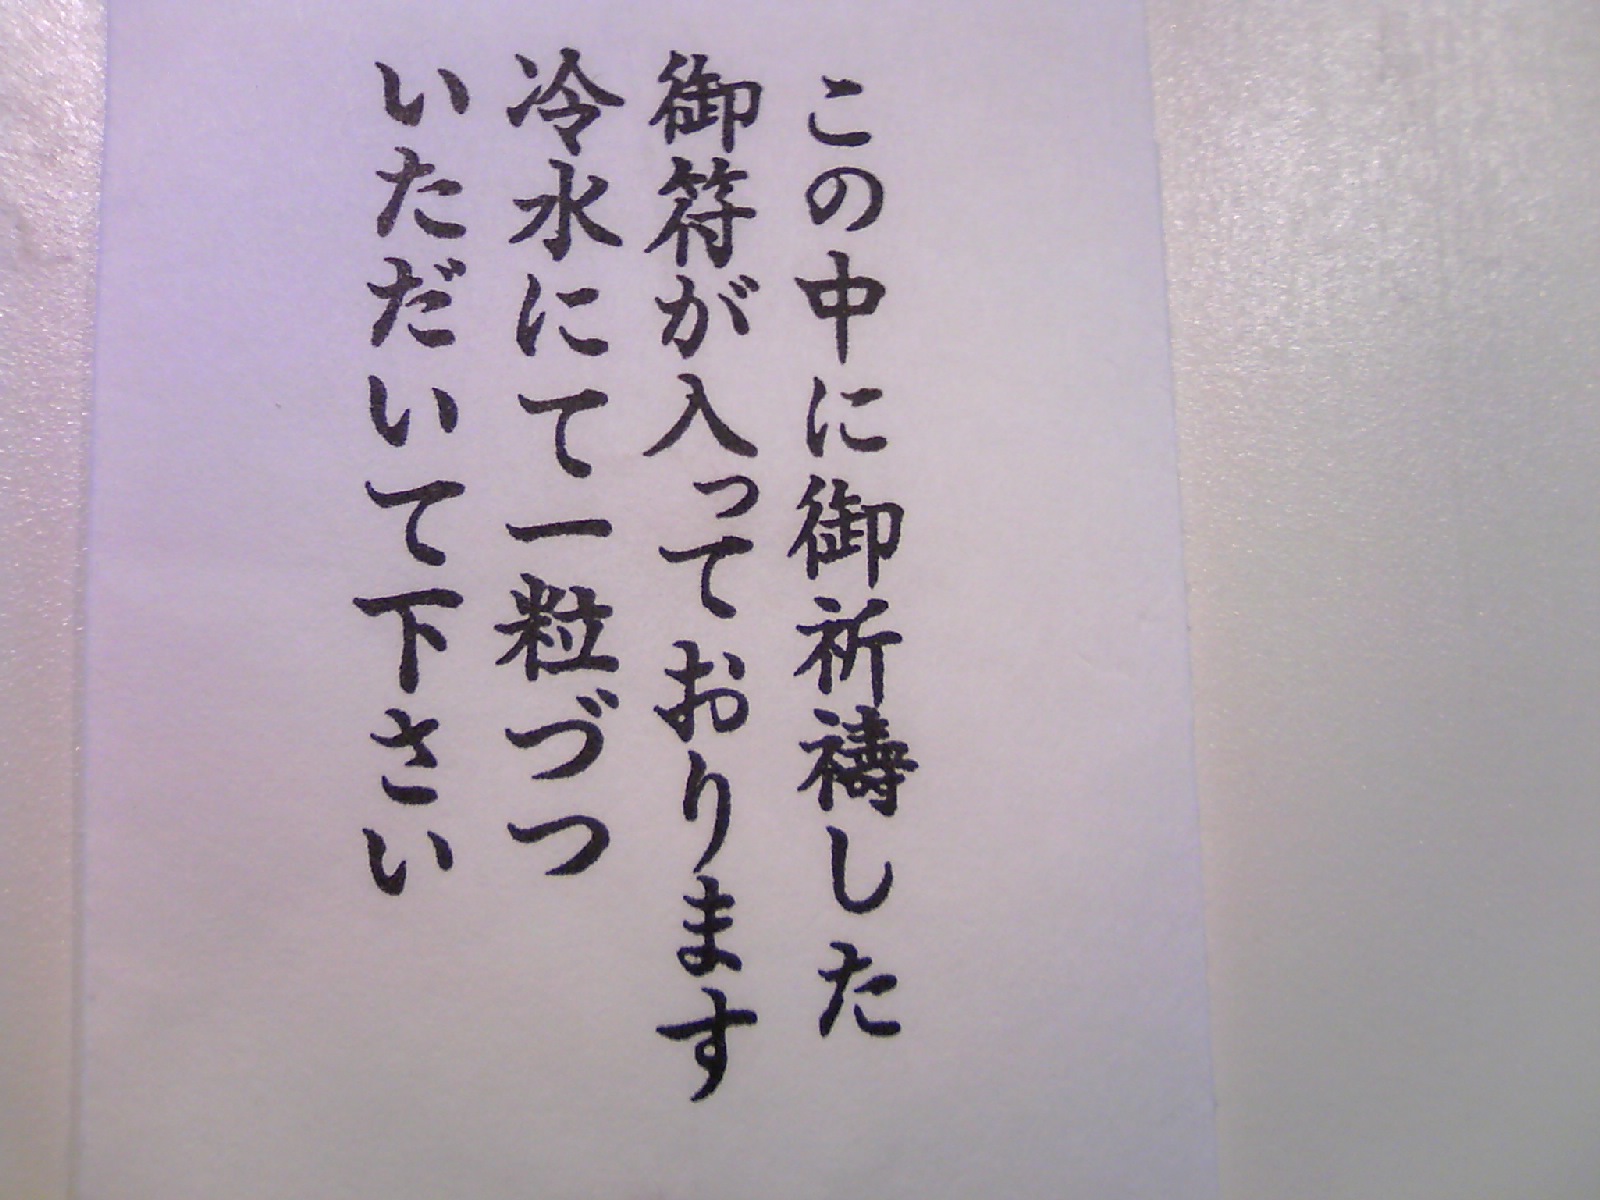 この中に御祈禱した
御符が入っております
冷水にて一粒づつ
いただいて下さい